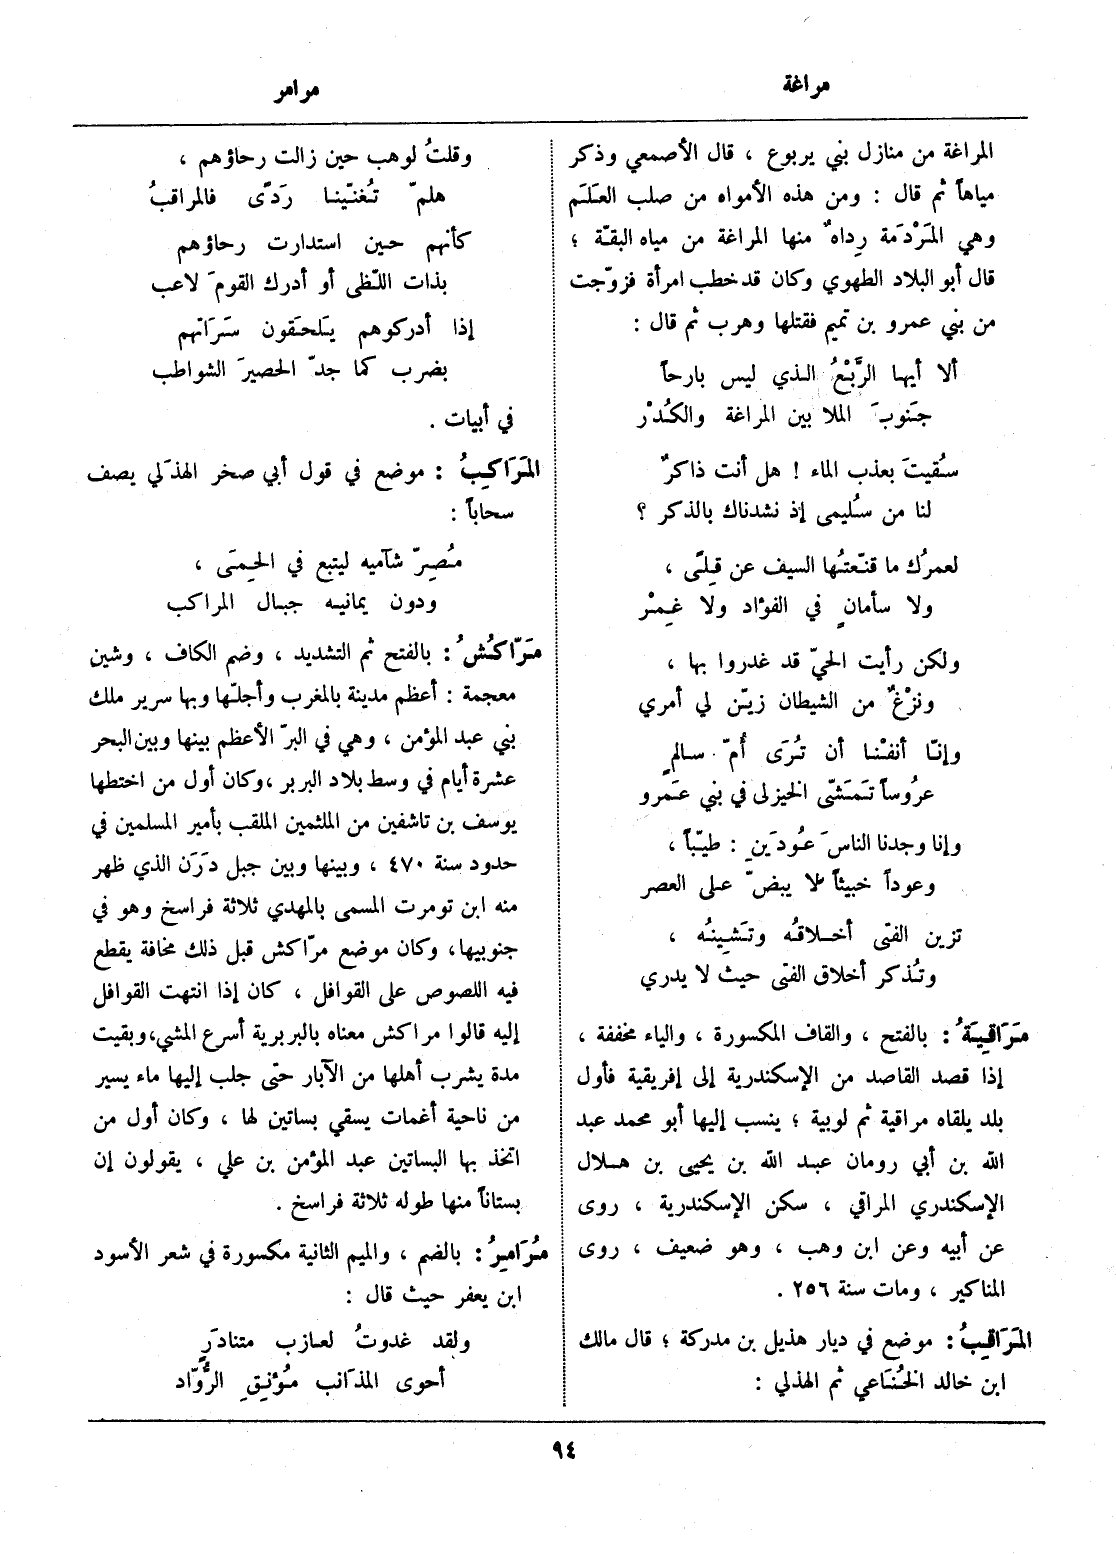 مراغة
مرامر
المراغة من منازل بني يربوع ، قال الأصمعي وذكر
مياهاً ثم قال : ومن هذه الأمواه من صلب العَلَم
وهي المَرْدَمة رِداهٌ منها المراغة من مياه البقّة ؛
قال أبو البلاد الطهوي وكان قد خطب امرأة فزوّجت
من بني عمرو بن تميم فقتلها وهرب ثم قال :
ألا أيها الرَّبْعُ الذي ليس بارحاً
جَنوبَ الملا بين المراغة والكُدْرِ
سُقيتَ بعذب الماء ! هل أنت ذاكرٌ
لنا من سُليمى إذ نشدناك بالذكر ؟
لعمرُك ما قنّعتُها السيف عن قِلًى ،
ولا سأمانٍ في الفؤاد ولا غِمْرِ
ولكن رأيت الحيّ قد غدروا بها ،
ونزْغٌ من الشيطان زيّن لي أمري
وإنّا أنفْنا أن تُرَى أُمّ سالمٍ
عروساً تَمَشّى الخيزلى في بني عَمرو
وإنا وجدنا الناسَ عُودَينِ : طيّباً ،
وعوداً خبيثاً لا يبضّ على العصر
تزين الفتى أخلاقُه وتَشينُه ،
وتُذكر أخلاق الفتى حيث لا يدري
مَرَاقِيَةُ : بالفتح ، والقاف المكسورة ، والياء مخففة ،
إذا قصد القاصد من الإسكندرية إلى إفريقية فأول
بلد يلقاه مراقية ثم لوبية ؛ ينسب إليها أبو محمد عبد
الله بن أبي رومان عبد الله بن يحيى بن هلال
الإسكندري المراقي ، سكن الإسكندرية ، روى
عن أبيه وعن ابن وهب ، وهو ضعيف ، روى
المناكير ، ومات سنة ٢٥٦ .
المَرَاقِبُ : موضع في ديار هذيل بن مدركة ؛ قال مالك
ابن خالد الخُنَاعي ثم الهذلي :
وقلتُ لوهب حين زالت رحاؤهم ،
هلمّ تُغنّينا رَدًى فالمراقبُ
كأنهم حين استدارت رحاؤهم
بذات اللّظى أو أدرك القومَ لاعب
إذا أدركوهم يَلحَقون سَرَاتهم
بضرب كما جدّ الحصيرَ الشواطب
في أبيات .
المَرَاكِبُ : موضع في قول أبي صخر الهذَلي يصف
سحاباً :
مُصِرّ شآميه ليتبع في الحِمَى ،
ودون يمانيه جبال المراكب
مَرّاكُشُ : بالفتح ثم التشديد ، وضم الكاف ، وشين
معجمة : أعظم مدينة بالمغرب وأجلّها وبها سرير ملك
بني عبد المؤمن ، وهي في البرّ الأعظم بينها وبين البحر
عشرة أيام في وسط بلاد البربر ، وكان أول من اختطها
يوسف بن تاشفين من الملثمين الملقب بأمير المسلمين في
حدود سنة ٤٧٠ ، وبينها وبين جبل دَرَن الذي ظهر
منه ابن تومرت المسمى بالمهدي ثلاثة فراسخ وهو في
جنوبيها، وكان موضع مرّاكش قبل ذلك مخافة يقطع
فيه اللصوص على القوافل ، كان إذا انتهت القوافل
إليه قالوا مراكش معناه بالبربرية أسرع المشي، وبقيت
مدة يشرب أهلها من الآبار حتى جلب إليها ماء يسير
من ناحية أغمات يسقي بساتين لها ، وكان أول من
اتخذ بها البساتين عبد المؤمن بن علي ، يقولون إن
بستاناً منها طوله ثلاثة فراسخ .
مُرَامِرُ : بالضم ، والميم الثانية مكسورة في شعر الأسود
ابن يعفر حيث قال :
ولقد غدوتُ لعازب متنادَرٍ
أحوى المذانب مُؤنِقِ الرُّوّاد
٩٤